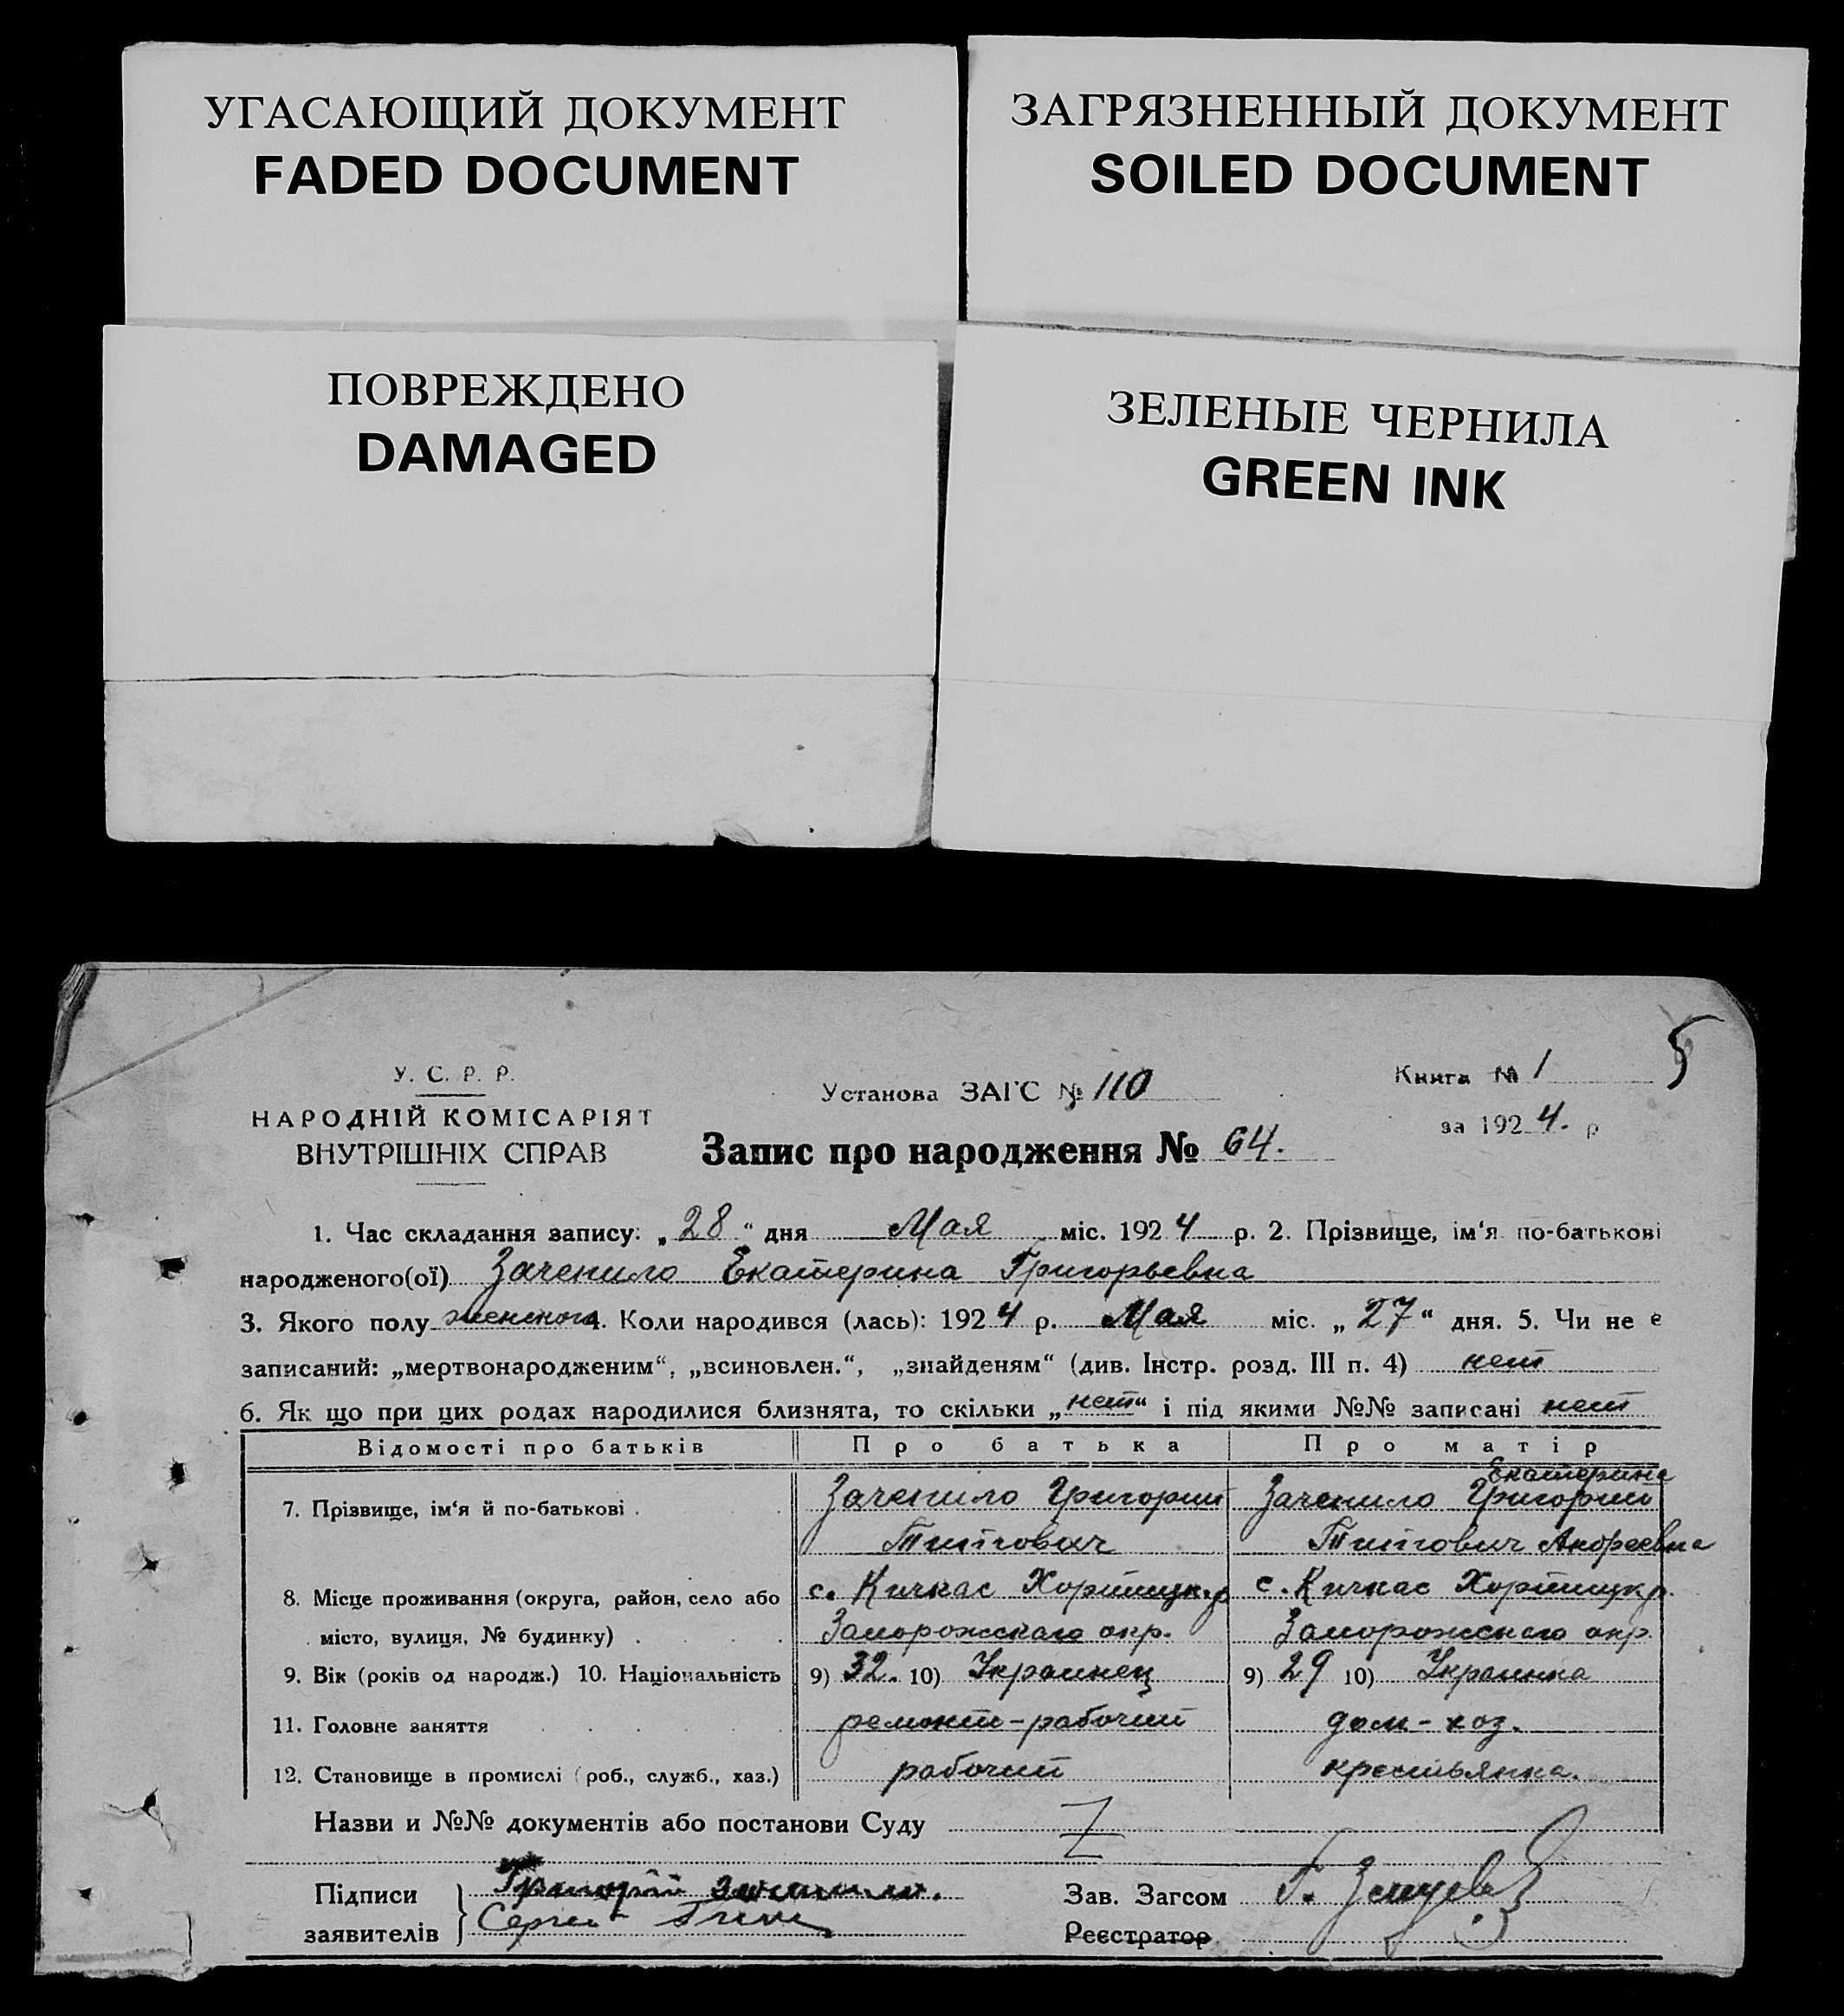 УГАСАЮЩИЙ ДОКУМЕНТ
FADED DOCUMENT
ЗАГРЯЗНЕННЫЙ ДОКУМЕНТ
SOILED DOCUMENT
ПОВРЕЖДЕНО
DAMAGED
ЗЕЛЕНЫЕ ЧЕРНИЛА
GREEN INK
5
У. С. Р. Р.
НАРОДНІЙ КОМІСАРІЯТ
ВНУТРІШНІХ СПРАВ
Установа ЗАГС № 110
Книга № 1
за 1924. р
Запис про народження № 64.
1. Час складання запису: „28“ дня Мая міс. 1924 р. 2. Прізвище, ім‘я по-батькові
народженого(ої) Зачепило Екатерина Григорьевна
3. Якого полу женского 4. Коли народився (лась): 1924 р. Мая міс. „27“ дня. 5. Чи не є
записаний: „мертвонародженим“, „всиновлен.“, „знайденям“ (див. Інстр. розд. III п. 4) нет
6. Як що при цих родах народилися близнята, то скільки „нет“ і під якими №№ записані нет
Відомості про батьків Про батька Про матір
Екатерина
7. Прізвище, ім‘я й по-батькові . Зачепило Григорий Зачепило Григорий
Титович Титович Андреевна
8. Місце проживання (округа, район, село або с. Кичкас Хортицк. р с. Кичкас Хортицк р.
місто, вулиця, № будинку) . Запорожскаго окр. Запорожскаго окр.
9. Вік (років од народж.) 10. Національність 9) 32. 10) Украинец 9) 29 10) Украинка
11. Головне заняття ремонт-рабочий дом-хоз.
12. Становище в промислі (роб., служб., хаз.) рабочий крестьянка.
Назви и №№ документів або постанови Суду Z
Підписи Григорій Зачепило. Зав. Загсом Г.
заявителів Сергей Реєстратор